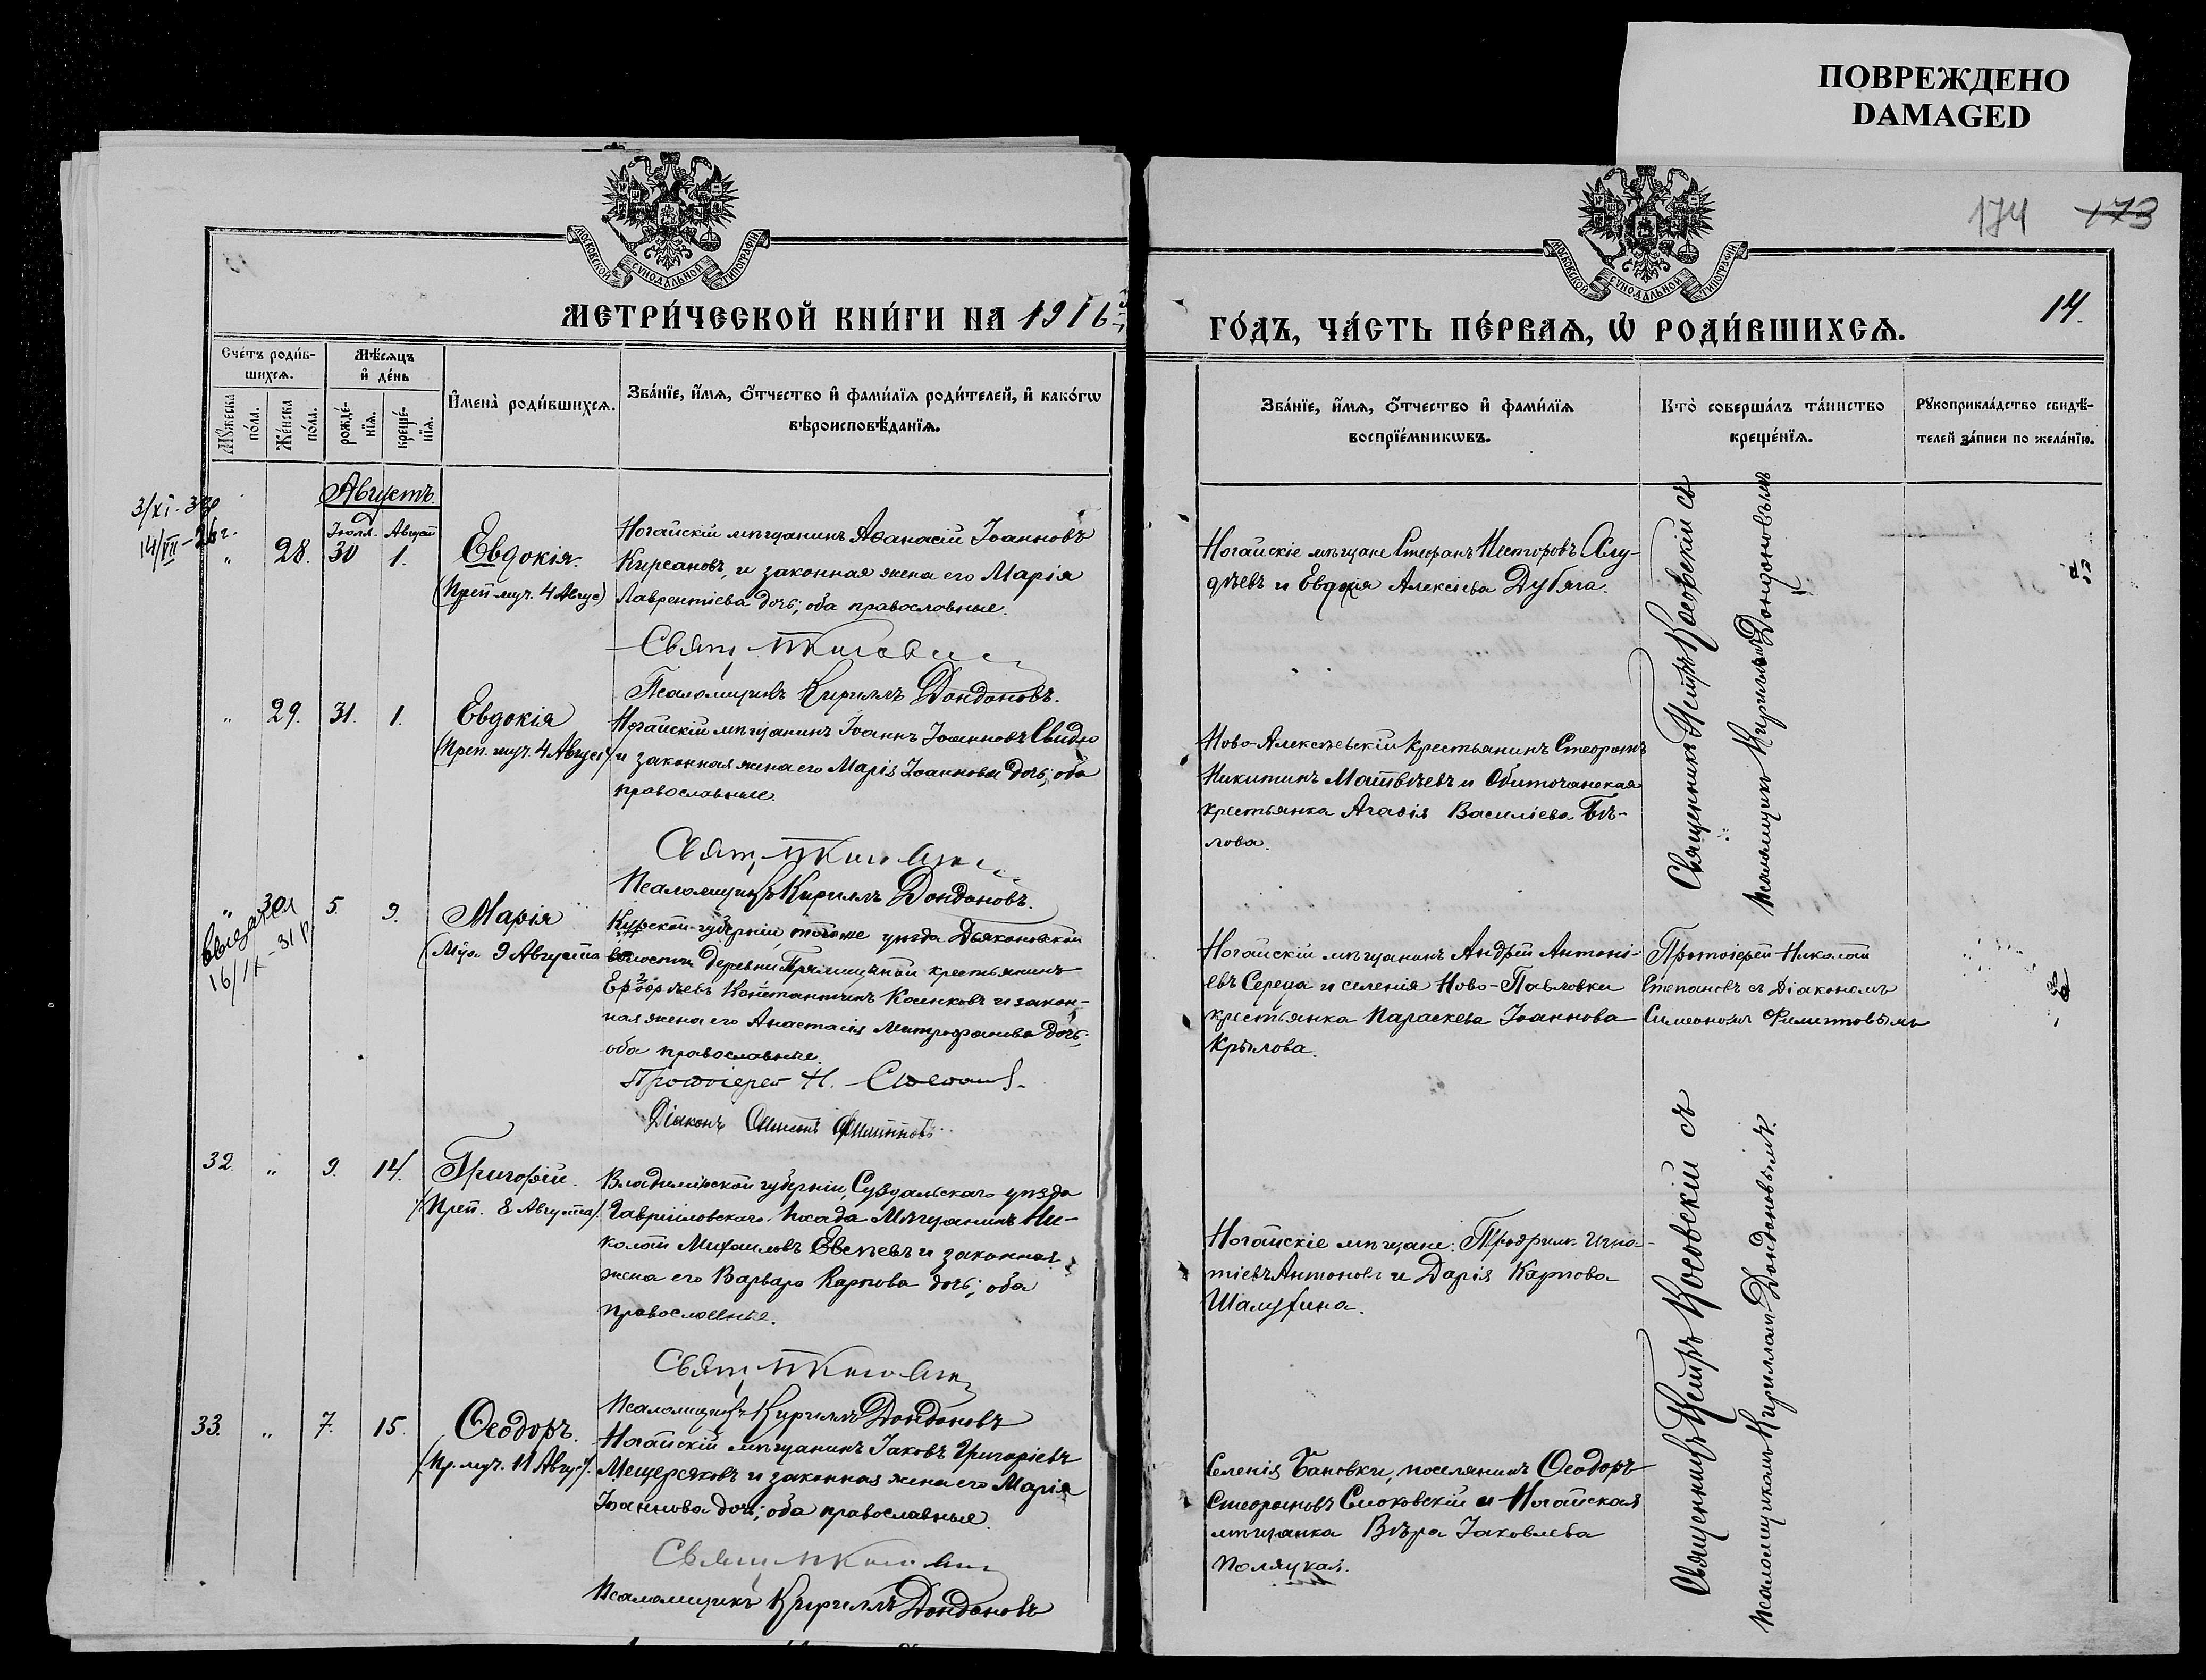 ПОВРЕЖДЕНО
DAMAGED
174 173
МОСКОВСКОЙ СѴНОДАЛЬНОЙ ТИПОГРАФІИ
МОСКОВСКОЙ СѴНОДАЛЬНОЙ ТИПОГРАФІИ
МЕТРИ́ЧЕСКОЙ КНИ́ГИ НА 1916
ГО́ДЪ, ЧА́СТЬ ПЕ́РВАѦ, Ѡ҆ РОДИ́ВШИХСѦ.
14.
Сче́тъ роди́в-
шихсѧ.
Мѣ́сѧцъ
и҆ де́нь
Мꙋ́жеска
по́ла.
Же́нска
по́ла.
рожде́-
нїѧ.
креще́-
нїѧ.
И҆мена̀ роди́вшихсѧ.
Зва́нїе, и҆́мѧ, ѻ҆́тчество и҆ фами́лїѧ роди́телей, и҆ како́гѡ
вѣроисповѣ́данїѧ.
Зва́нїе, и҆́мѧ, ѻ҆́тчество и҆ фами́лїѧ
воспрїе́мникѡвъ.
Кто̀ соверша́лъ та́инство
креще́нїѧ.
Рꙋкоприкла́дство свидѣ́-
телей за́писи по жела́нїю.
Августъ.
14/VII-26г.
Іюля. Август
" 28. 30 1.
Евдокія.
(Преп-муч. 4 Авгус)
Ногайскій мѣщанинъ Аѳанасій Іоанновъ
Кирсановъ, и законная жена его Марія
Лаврентіева дочь; оба православные.
Свящ.
Псаломщикъ Кириллъ Дондоновъ.
Ногайскіе мѣщане Стефанъ Несторовъ Алу-
дѣевъ и Евдокія Алексіева Дубяга.
Священникъ Петръ Косовскій съ
Псаломщикъ Кирилломъ Дондоновымъ
" 29. 31. 1.
Евдокія
(Преп. муч. 4 Август)
Ногайскій мѣщанинъ Іоаннъ Іоанновъ Свидло
и законная жена его Марія Іоаннова дочь; оба
православные.
Свящ.
Псаломщикъ Кириллъ Дондоновъ.
Ново-Алексѣевскій крестьянинъ Стефанъ
Никитинъ Матвѣевъ и Обиточанская
крестьянка Агафія Василіева Бѣ-
лова.
" 30 5. 9.
выдана
16/IX-31 г.
Марія
(Муч. 9 Августа
Курской губерніи, того же уѣзда Дьяконовской
волости деревни крестьянинъ
Константинъ Косенковъ и закон-
ная жена его Анастасія Митрофанова дочь;
оба православные.
Протоіерей Н. Степановъ.
Діаконъ Симеонъ Филипповъ.
Ногайскій мѣщанинъ Андрей Антоні-
евъ Середа и селенія Ново-Павловки
крестьянка Параскева Іоаннова
Крылова.
Протоіерей Николай
Степановъ съ Діакономъ
Симеономъ Филипповымъ
32. " 9. 14.
Григорій.
(Преп. 8 Августа).
Владимірской губерніи, Суздальскаго уѣзда
Гавриловскаго Посада Мѣщанинъ Ни-
колай Михаиловъ Евсѣевъ и законная
жена его Варвара Карпова дочь; оба
православные.
Свящ.
Псаломщикъ Кириллъ Дондоновъ
Ногайскіе мѣщане: Трофимъ Игна-
тіевъ Антоновъ и Дарія Карпова
Шалугина.
Священникъ Петръ Косовскій съ
Псаломщикомъ Кирилломъ Дондоновымъ.
33. " 7. 15.
Ѳеодоръ.
(Пр. муч. 11 Август).
Ногайскій мѣщанинъ Іаковъ Григоріевъ
Мещеряковъ и законная жена его Марія
Іоаннова дочь; оба православные.
Свящ.
Псаломщикъ Кириллъ Дондоновъ
Селенія Бановки, поселянинъ Ѳеодоръ
Стефановъ Сиоковскій и Ногайская
мѣщанка Вѣра Іаковлева
Поляцкая.